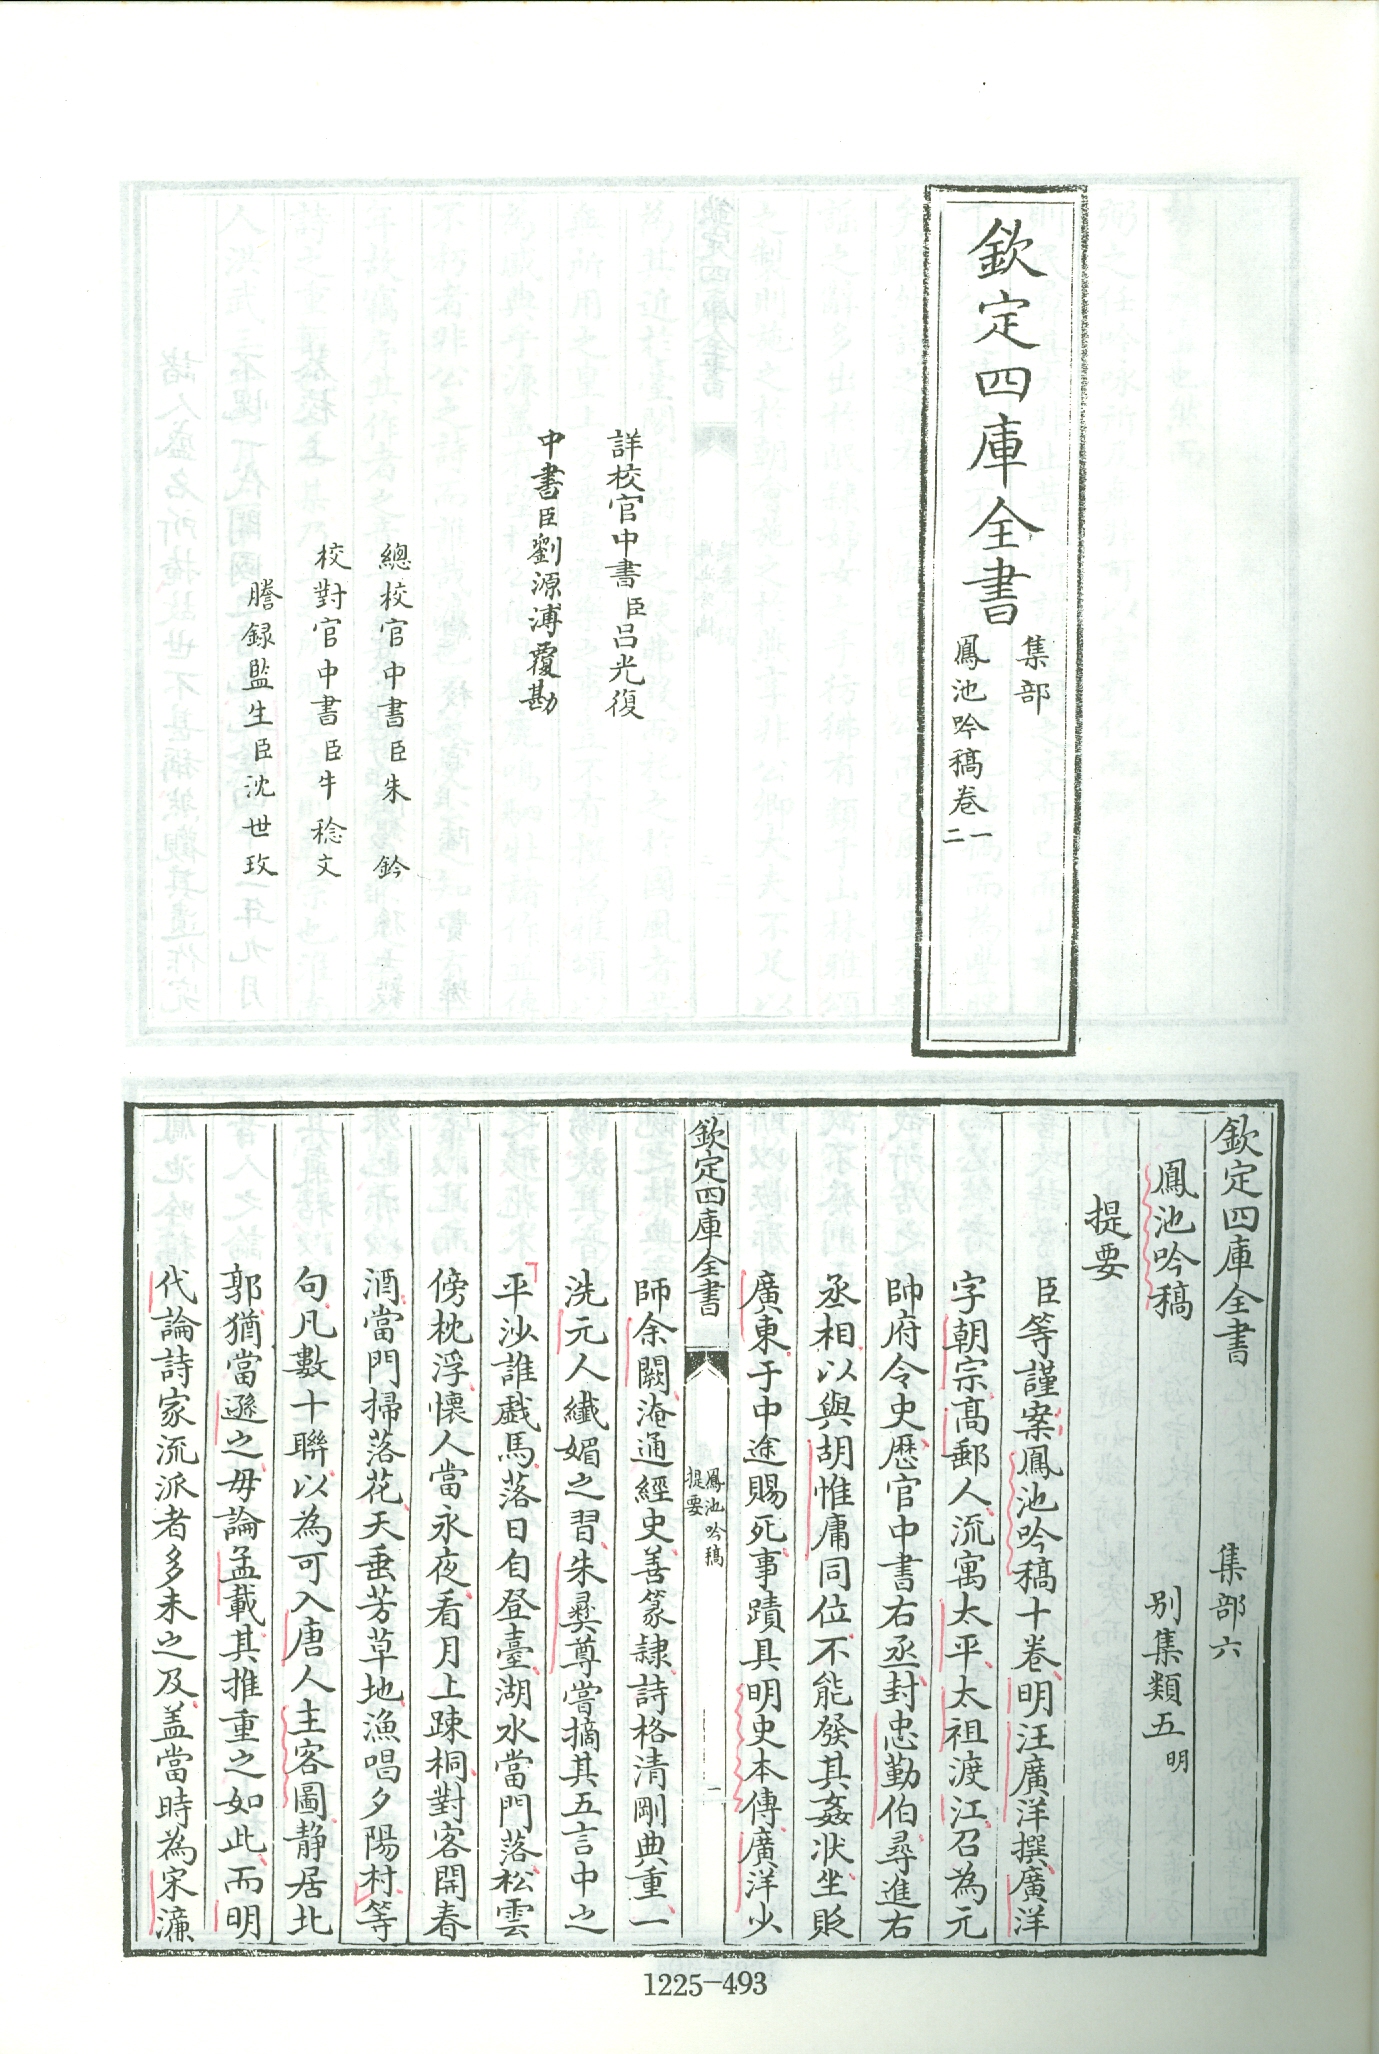 欽定四庫全書
集部
鳳池吟稿卷一
二
詳校官中書臣呂光復
中書臣劉源溥覆勘
總校官中書臣朱鈐
校對官中書臣牛稔文
謄録監生臣沈世玫
欽定四庫全書 集部六
鳳池吟稿 别集類五明
提要
臣等謹案鳳池吟稿十卷明汪廣洋撰廣洋
字朝宗髙郵人流寓太平太祖渡江召為元
帥府令史歴官中書右丞封忠勤伯尋進右
丞相以與胡惟庸同位不能發其姦狀坐貶
廣東于中途賜死事蹟具明史本傳廣洋少
欽定四庫全書
鳳池吟稿
提要
一
師余闕淹通經史善篆隷詩格清剛典重一
洗元人纖媚之習朱彛尊嘗摘其五言中之
平沙誰戯馬落日自登臺湖水當門落松雲
傍枕浮懷人當永夜看月上踈桐對客開春
酒當門掃落花天垂芳草地漁唱夕陽村等
句凡數十聯以為可入唐人主客圖静居北
郭猶當遜之毋論孟載其推重之如此而明
代論詩家流派者多未之及盖當時為宋濓
1225-493